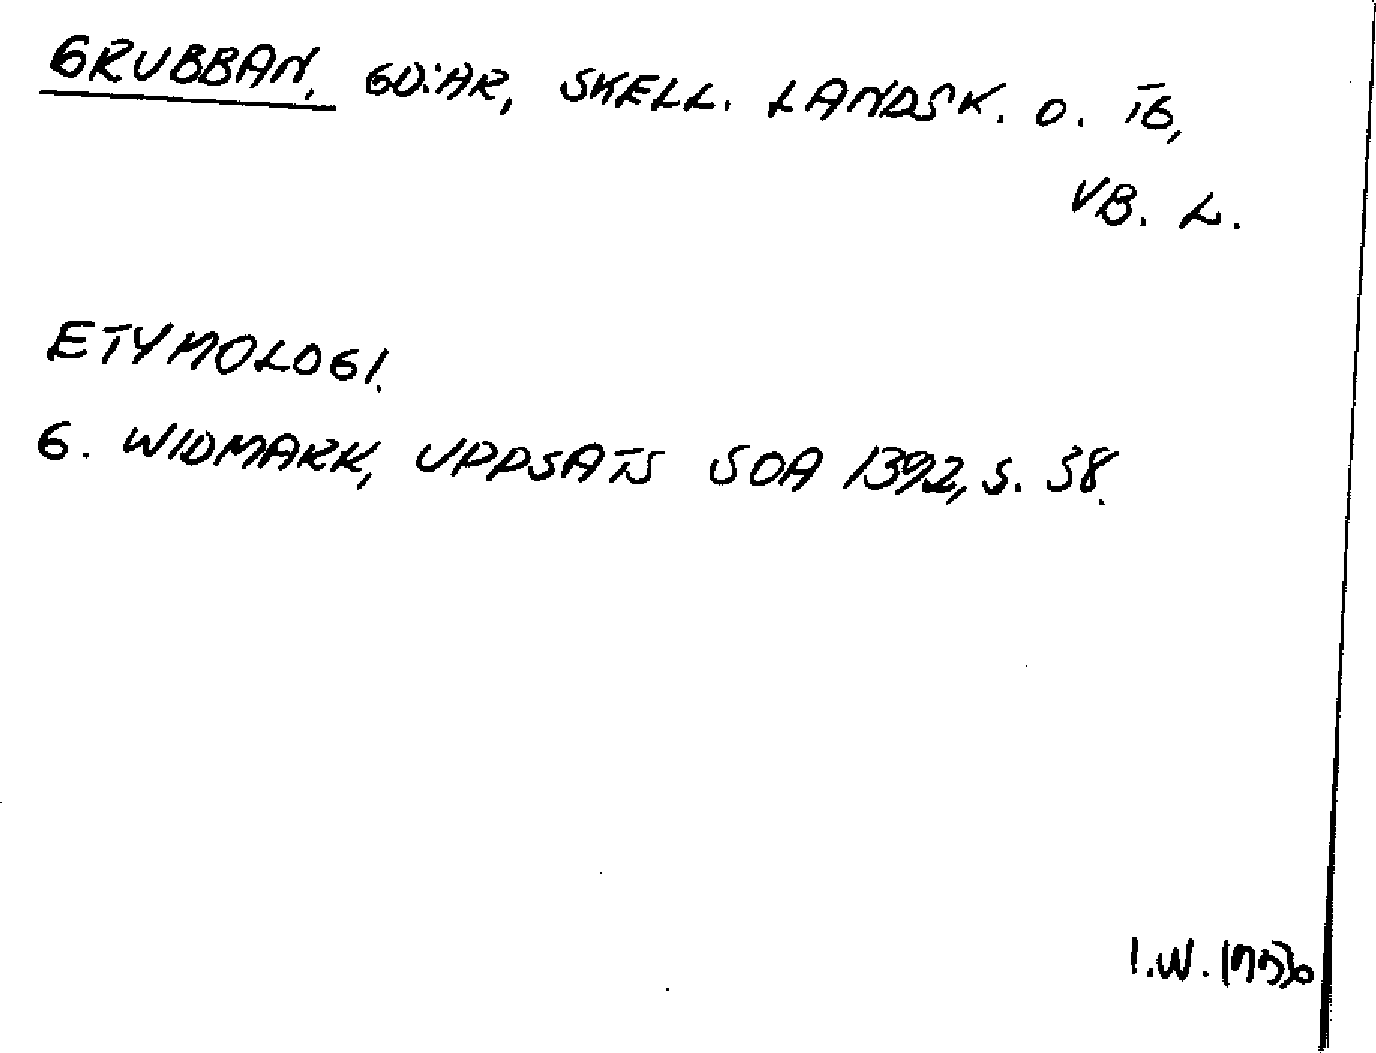 GRUBBAN, GD:AR, SKELL. LANDSK. O. TG,
VB. L.
ETYMOLOGI.
G. WIDMARK, UPPSATS SOA 1392, S. 58.
I.W.